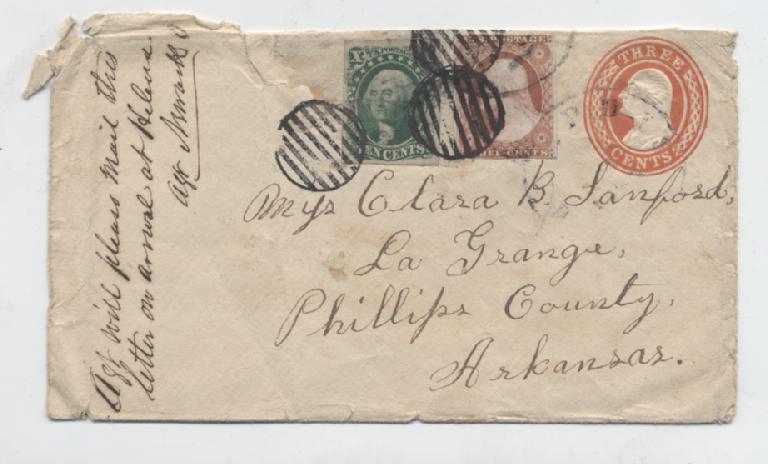 Agt will please mail this
letter on arrival at Helena
Agt
U.S. POSTAGE
TEN CENTS
POSTAGE
THREE CENTS
THREE
CENTS
Mrs Clara B Sanford,
La Grange,
Phillips County,
Arkansas.